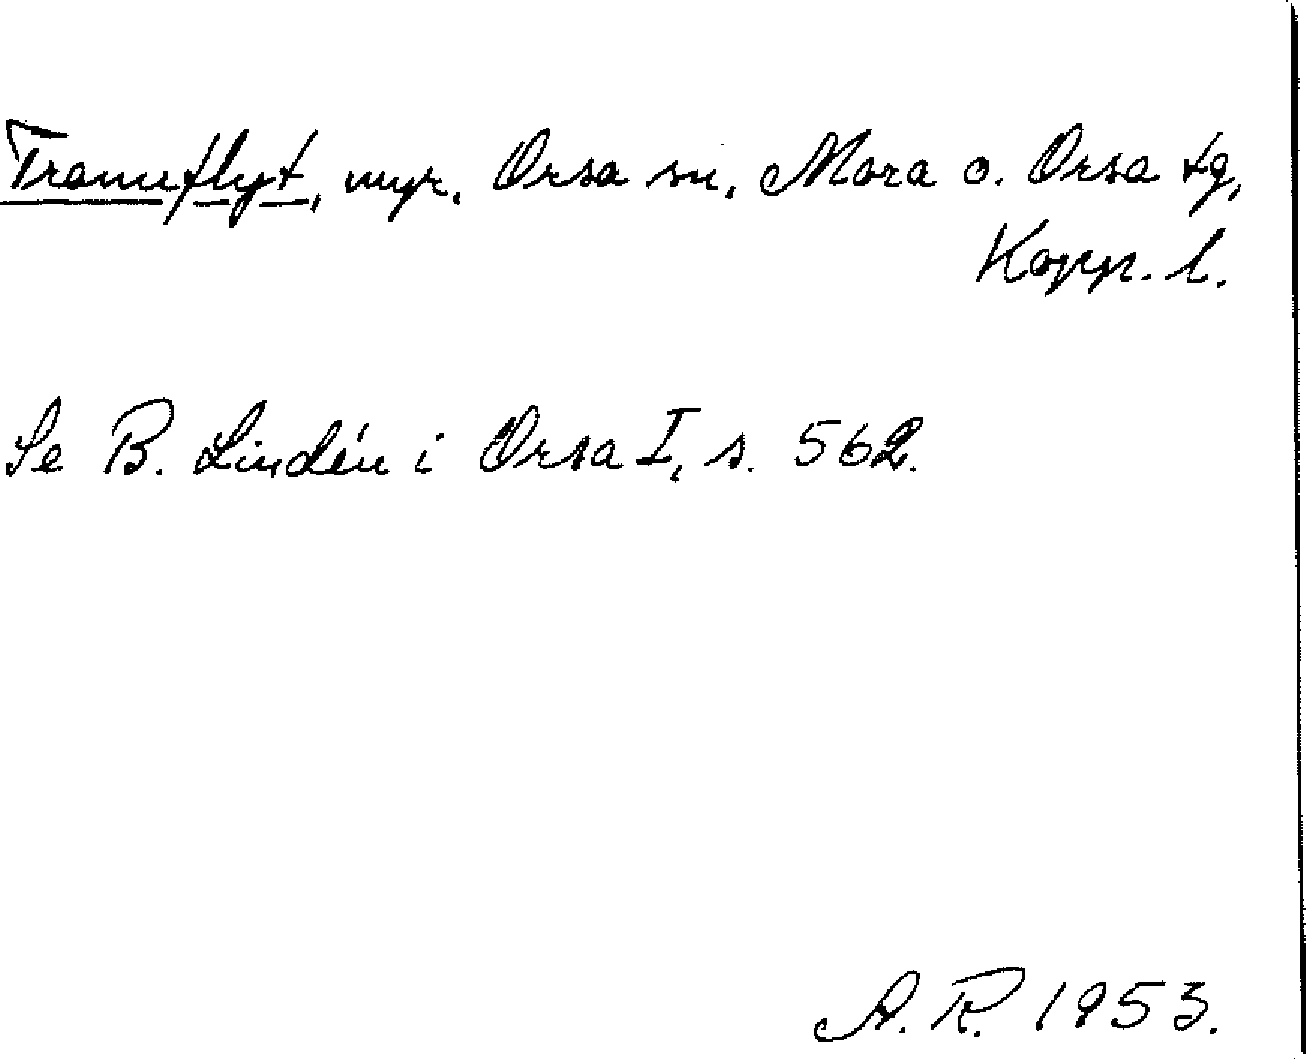 Tranuflyt, myr, Orsa sn, Mora o. Orsa tg,
Kopp. l.
Se B. Lindén i Orsa I, s. 562.
A. R. 1953.